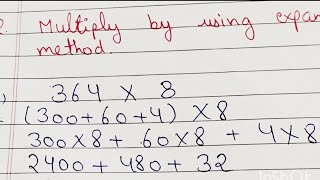 Multiply by using
method.
364 × 8
(300+60+4) × 8
300×8 + 60×8 + 4×8
2400 + 480 + 32